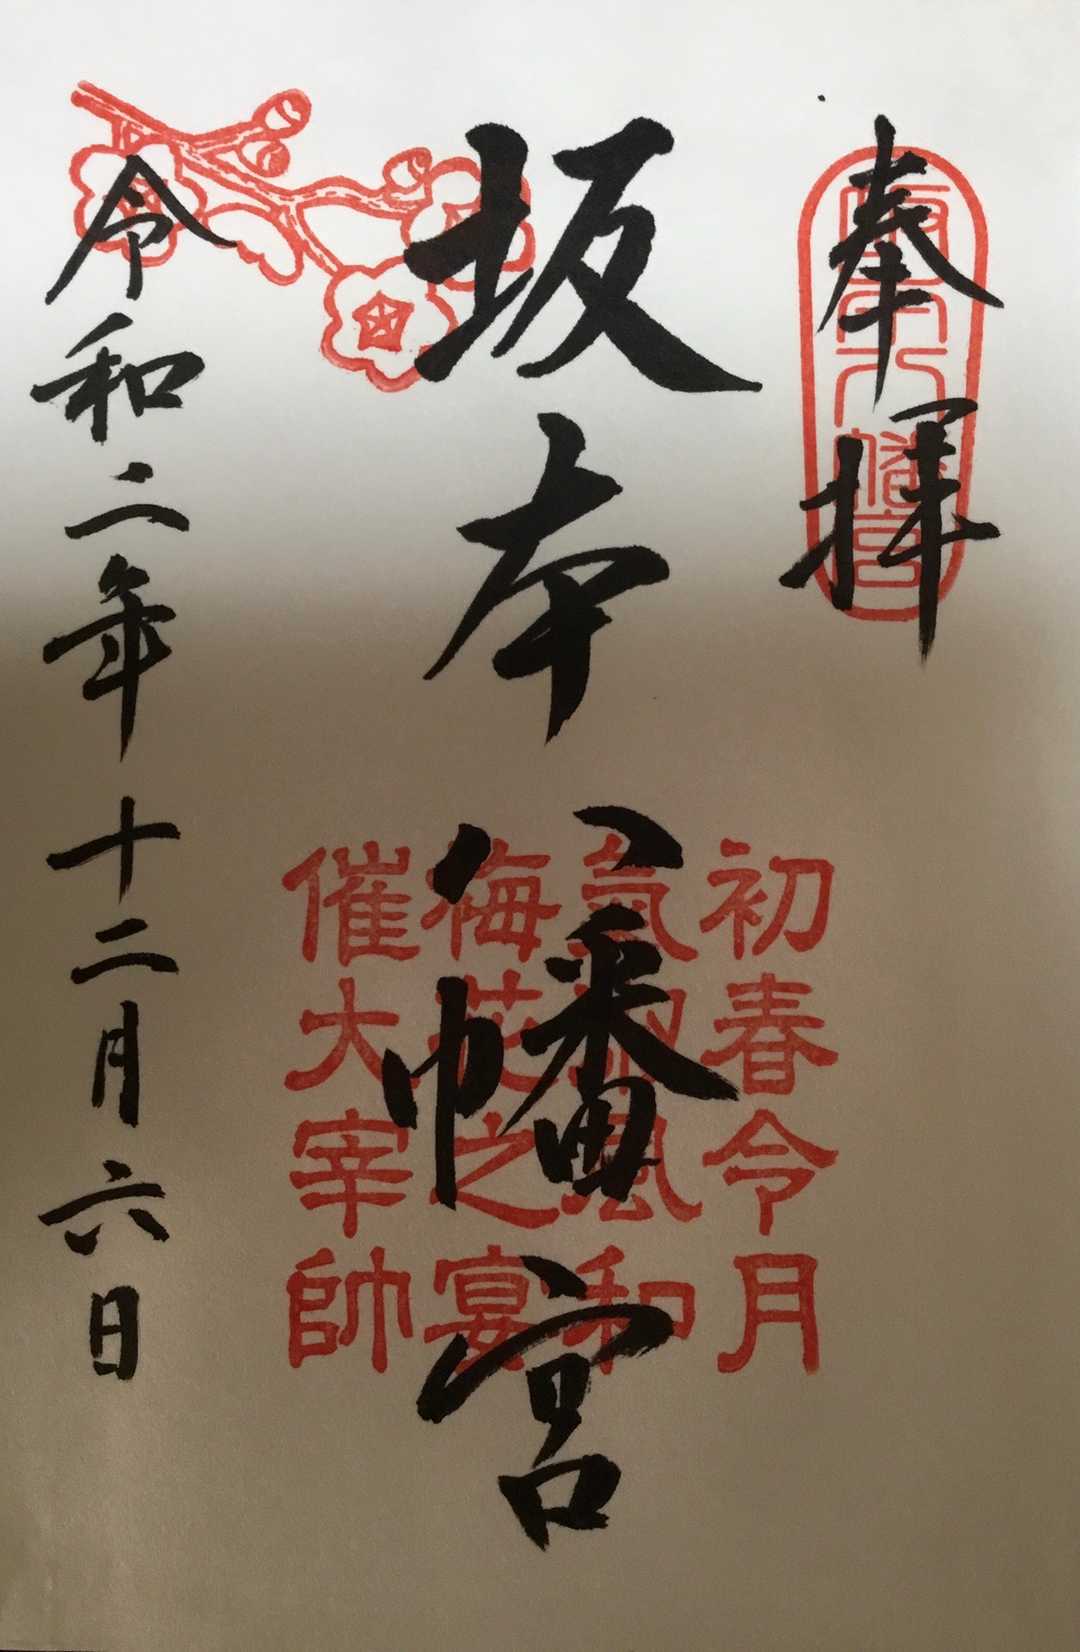 奉拝
坂本八幡宮
初春令月
氣淑風和
梅花之宴
催大宰帥
令和二年十二月六日